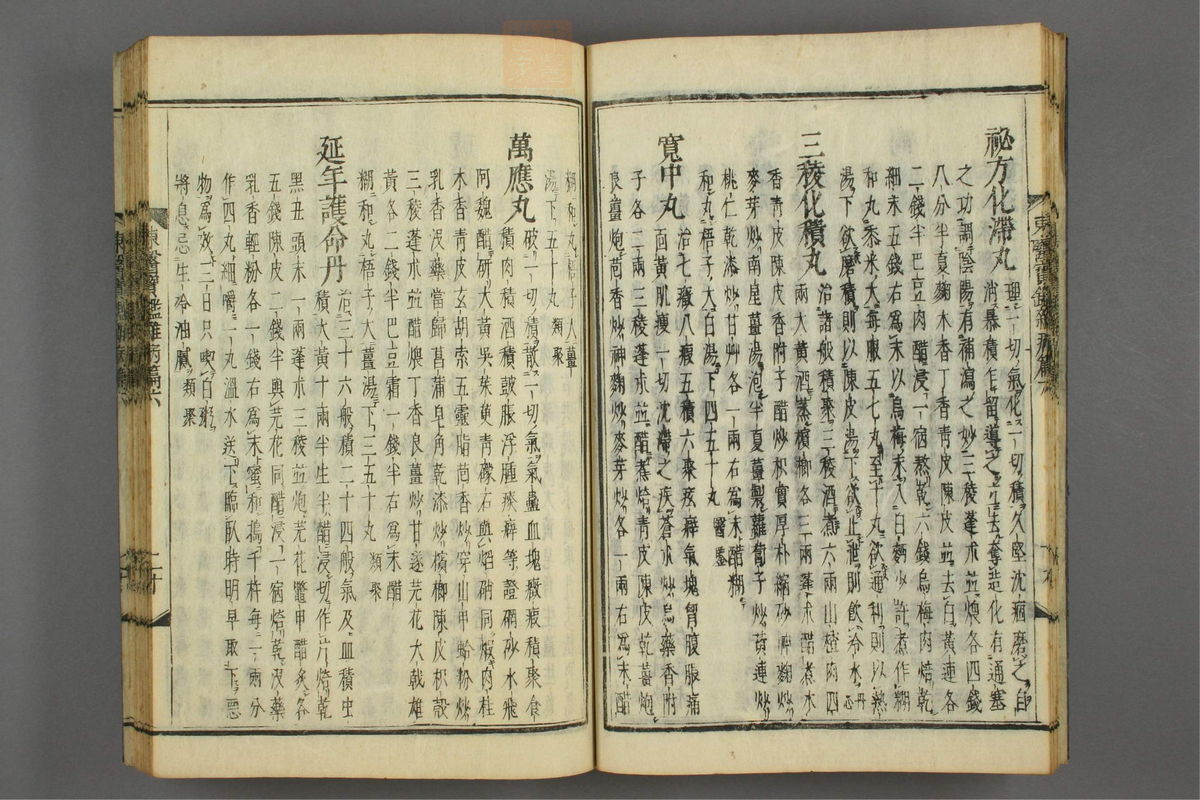 秘方化滯丸 理一切氣化一切積久堅沈痼磨之自
消暴積乍留導之立去奪造化有通塞
之功調陰陽有補瀉之妙三稜蓬朮並煨各四錢
八分半夏麴木香丁香青皮陳皮並去白黃連各
二錢半巴豆肉醋浸一宿熬乾六錢烏梅肉焙乾
細末五錢右爲末以烏梅末入白麪少許煮作糊
和丸黍米大每服五七丸至十丸欲通利則以熱
湯下欲磨積則以陳皮湯下欲止泄則飲冷水 丹心
三稜化積丸 治諸般積聚三稜酒煮六兩山楂肉四
兩大黃酒蒸檳榔各三兩蓬朮醋煮木
香青皮陳皮香附子醋炒枳實厚朴縮砂神麴炒
麥芽炒南星薑湯泡半夏薑製蘿葍子炒黃連炒
桃仁乾漆炒甘艸各一兩右爲末醋糊
和丸梧子大白湯下四五十丸 醫鑒
寬中丸 治七癥八瘕五積六聚痃癖氣塊胷腹脹痛
面黃肌瘦一切沈滯之疾蒼朮炒烏藥香附
子各二兩三稜蓬朮並醋煮焙青皮陳皮乾薑炮
良薑炮茴香炒神麴炒麥芽炒各一兩右爲末醋
糊和丸梧子大薑
湯下五十丸 類聚
萬應丸 破一切積散一切氣氣蠱血塊癥瘕積聚食
積肉積酒積鼓脹浮腫痰癖等證硇砂水飛
阿魏醋研大黃吳茱萸青礞石與焰硝同煅肉桂
木香青皮玄胡索五靈脂茴香炒穿山甲蛤粉炒
乳香沒藥當歸莪茂皂角乾漆炒檳榔陳皮枳殼
三稜蓬朮並醋煨丁香良薑炒甘遂芫花大戟雄
黃各二錢半巴豆霜一錢半右爲末醋
糊和丸梧子大薑湯下三五十丸 類聚
延年護命丹 治三十六般積二十四般氣及血積虫
積大黃十兩半生半醋浸切作片焙乾
黑丑頭末一兩蓬朮三稜並炮芫花鱉甲醋炙各
五錢陳皮二錢半與芫花同醋浸一宿焙乾沒藥
乳香輕粉各一錢右爲末蜜和搗千杵每一兩分
作四丸細嚼一丸溫水送下臨臥時明早取下惡
物爲效三日只喫白粥
將息忌生冷油膩 類聚
東醫寶鑑雜病篇六
二十